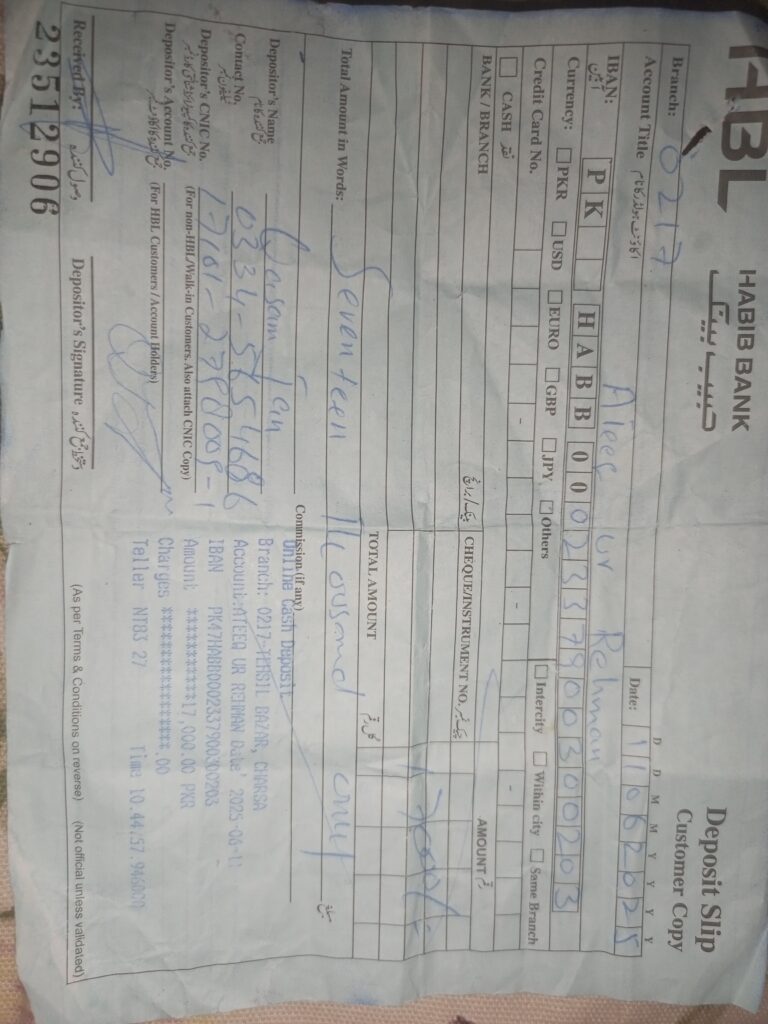 HBL HABIB BANK
حبیب بینک
Deposit Slip
Customer Copy
Branch: 0217
D D M M Y Y Y Y
Date: 11062025
Account Title اکاؤنٹ ہولڈر کا نام Ateeq ur Rehman
IBAN: PK HABB 0002337900300203
Currency: PKR USD EURO GBP JPY Others Intercity Within city Same Branch
Credit Card No. - - -
CASH نقد
BANK / BRANCH بینک/برانچ CHEQUE/INSTRUMENT NO. چیک نمبر AMOUNT رقم
17000/-
TOTAL AMOUNT کل رقم
Total Amount in Words: Seventeen Thousand only
Commission (if any)
Depositor's Name Qasam Jan
Contact No. 0334-5654686
Depositor's CNIC No.
(For non-HBL/Walk-in Customers. Also attach CNIC Copy)
Depositor's Account No.
(For HBL Customers / Account Holders)
Online Cash Deposit
Branch: 0217-TEHSIL BAZAR, CHARSA
Account:ATEEQ UR REHMAN Date' 2025-06-11
IBAN PK47HABB0002337900300203
Amount ***********17,000.00 PKR
Charges *****************.00
Teller NTB3 27 Time 10.44:57.946000
Received By: وصول کنندہ
Depositor's Signature
(As per Terms & Conditions on reverse) (Not official unless validated)
23512906